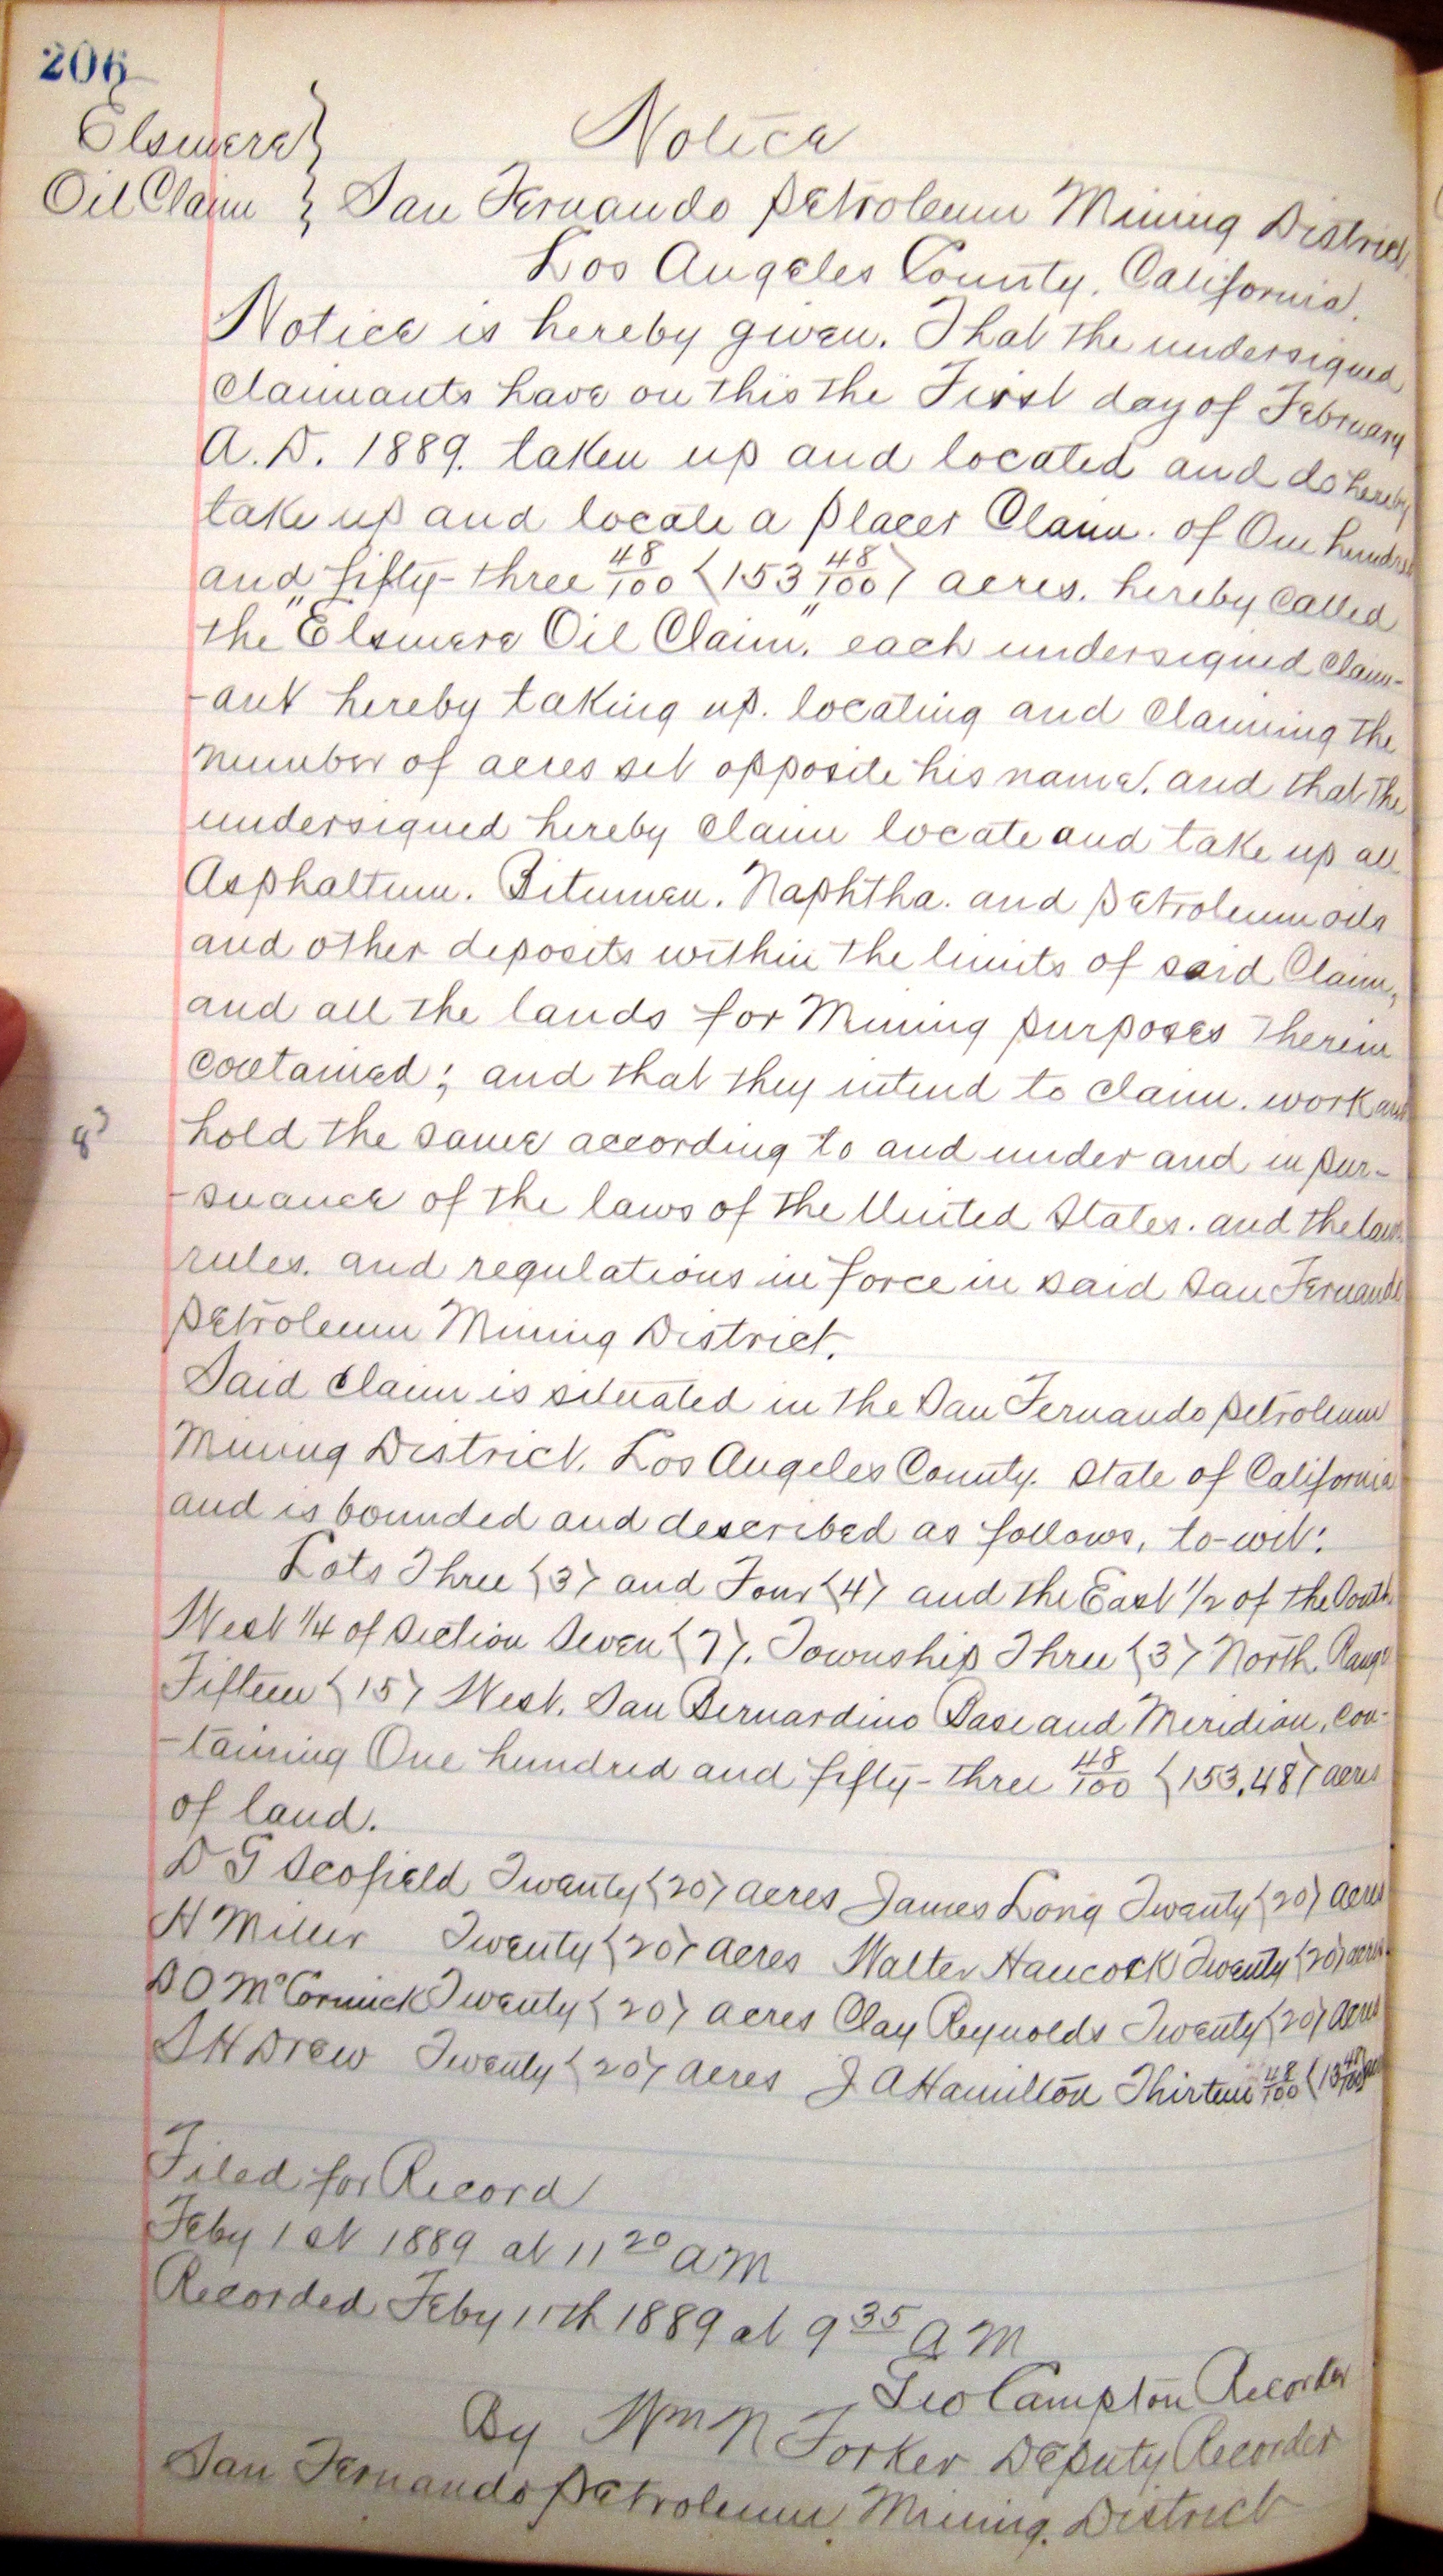 206
Elsmere }
Notice
Oil Claim } San Fernando Petroleum Mining District.
Los Angeles County, California.
Notice is hereby given. That the undersigned
claimants have on this the First day of February
A.D. 1889. taken up and located and do hereby
take up and locate a Placer Claim. of One hundred
and fifty-three 48/100 (153 48/100) acres. hereby called
the "Elsmere Oil Claim," each undersigned claim-
-ant hereby taking up. locating and claiming the
number of acres set opposite his name. and that the
undersigned hereby claim locate and take up all
Asphaltum. Bitumen. Naphtha. and Petroleum oils
and other deposits within the limits of said Claim,
and all the lands for Mining purposes therein
contained; and that they intend to claim. work and
hold the same according to and under and in pur-
-suance of the laws of the United States. and the laws.
rules. and regulations in force in said San Fernando
Petroleum Mining District.
Said Claim is situated in the San Fernando Petroleum
Mining District. Los Angeles County. State of California
and is bounded and described as follows, to-wit:
Lots Three (3) and Four (4) and the East 1/2 of the South
West 1/4 of Section Seven (7). Township Three (3) North. Range
Fifteen (15) West. San Bernardino Base and Meridian, con-
-taining One hundred and fifty-three 48/100 (153.48) acres
of land.
D G Scofield Twenty (20) acres James Long Twenty (20) acres
H Miller Twenty (20) acres Walter Hancock Twenty (20) acres.
D O McCormick Twenty (20) acres Clay Reynolds Twenty (20) acres
S H Drew Twenty (20) acres J A Hamilton Thirteen 48/100 (13 48/100) acr
Filed for Record
Feby 1st 1889 at 11 20 AM
Recorded Feby 11th 1889 at 9 35 A M
Geo Campton Recorder
By Wm N Forker Deputy Recorder
San Fernando Petroleum Mining District